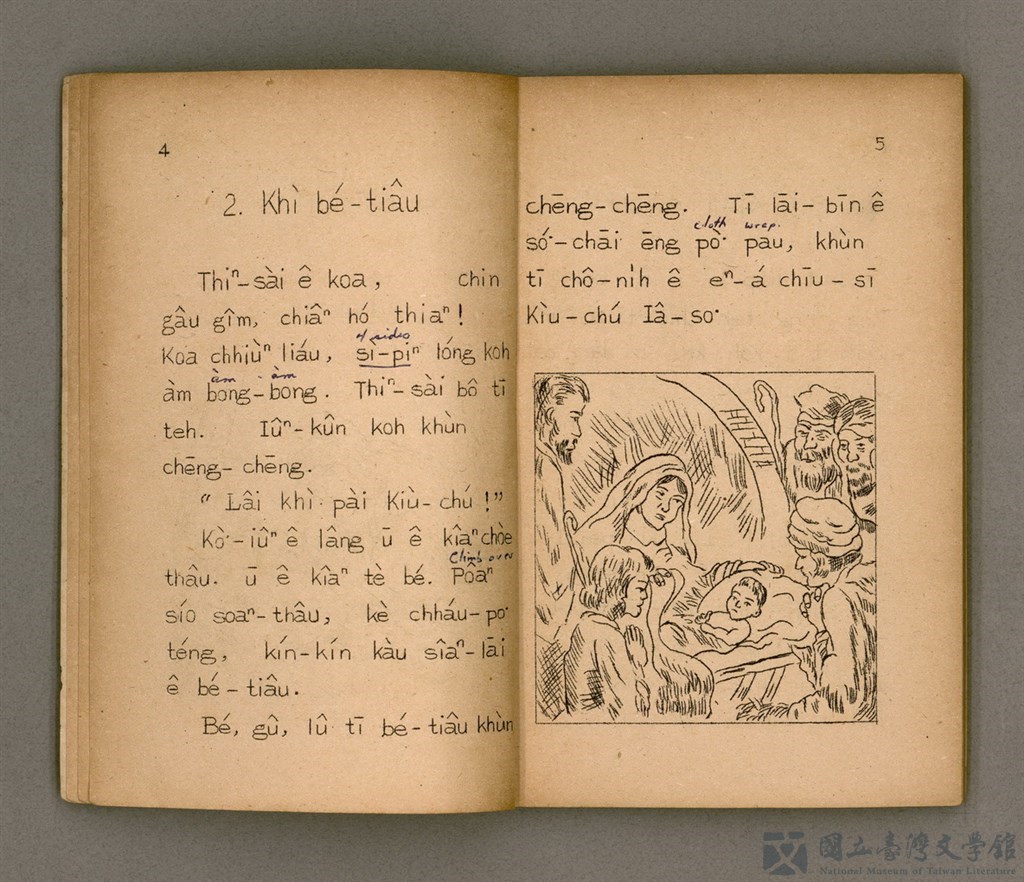 4
2. Khì bé-tiâu
Thiⁿ-sài ê koa, chin
gâu gîm, chiâⁿ hó thiaⁿ!
4 sides
Koa chhiùⁿ liáu, sì-piⁿ lóng koh
àm - àm
àm bong-bong. Thiⁿ-sài bô tī
teh. Iûⁿ-kûn koh khùn
chēng-chēng.
“Lâi khì pài Kiù-chú!”
Kò͘-iûⁿ ê lâng ū ê kîaⁿ chòe
Climb over
thâu. ū ê kîaⁿ tè bé. Pôaⁿ
sío soaⁿ-thâu, kè chháu-po͘
téng, kín-kín kàu sîaⁿ-lāi
ê bé-tiâu.
Bé, gû, Iû tī bé-tiâu khùn
5
chēng-chēng. Tī lāi-bīn ê
cloth wrap.
só͘-chāi ēng pò͘ pau, khùn
tī chô-ni̍h ê eⁿ-á chīu-sī
Kìu-chú Iâ-so͘
國立臺灣文學館
National Museum of Taiwan Literature